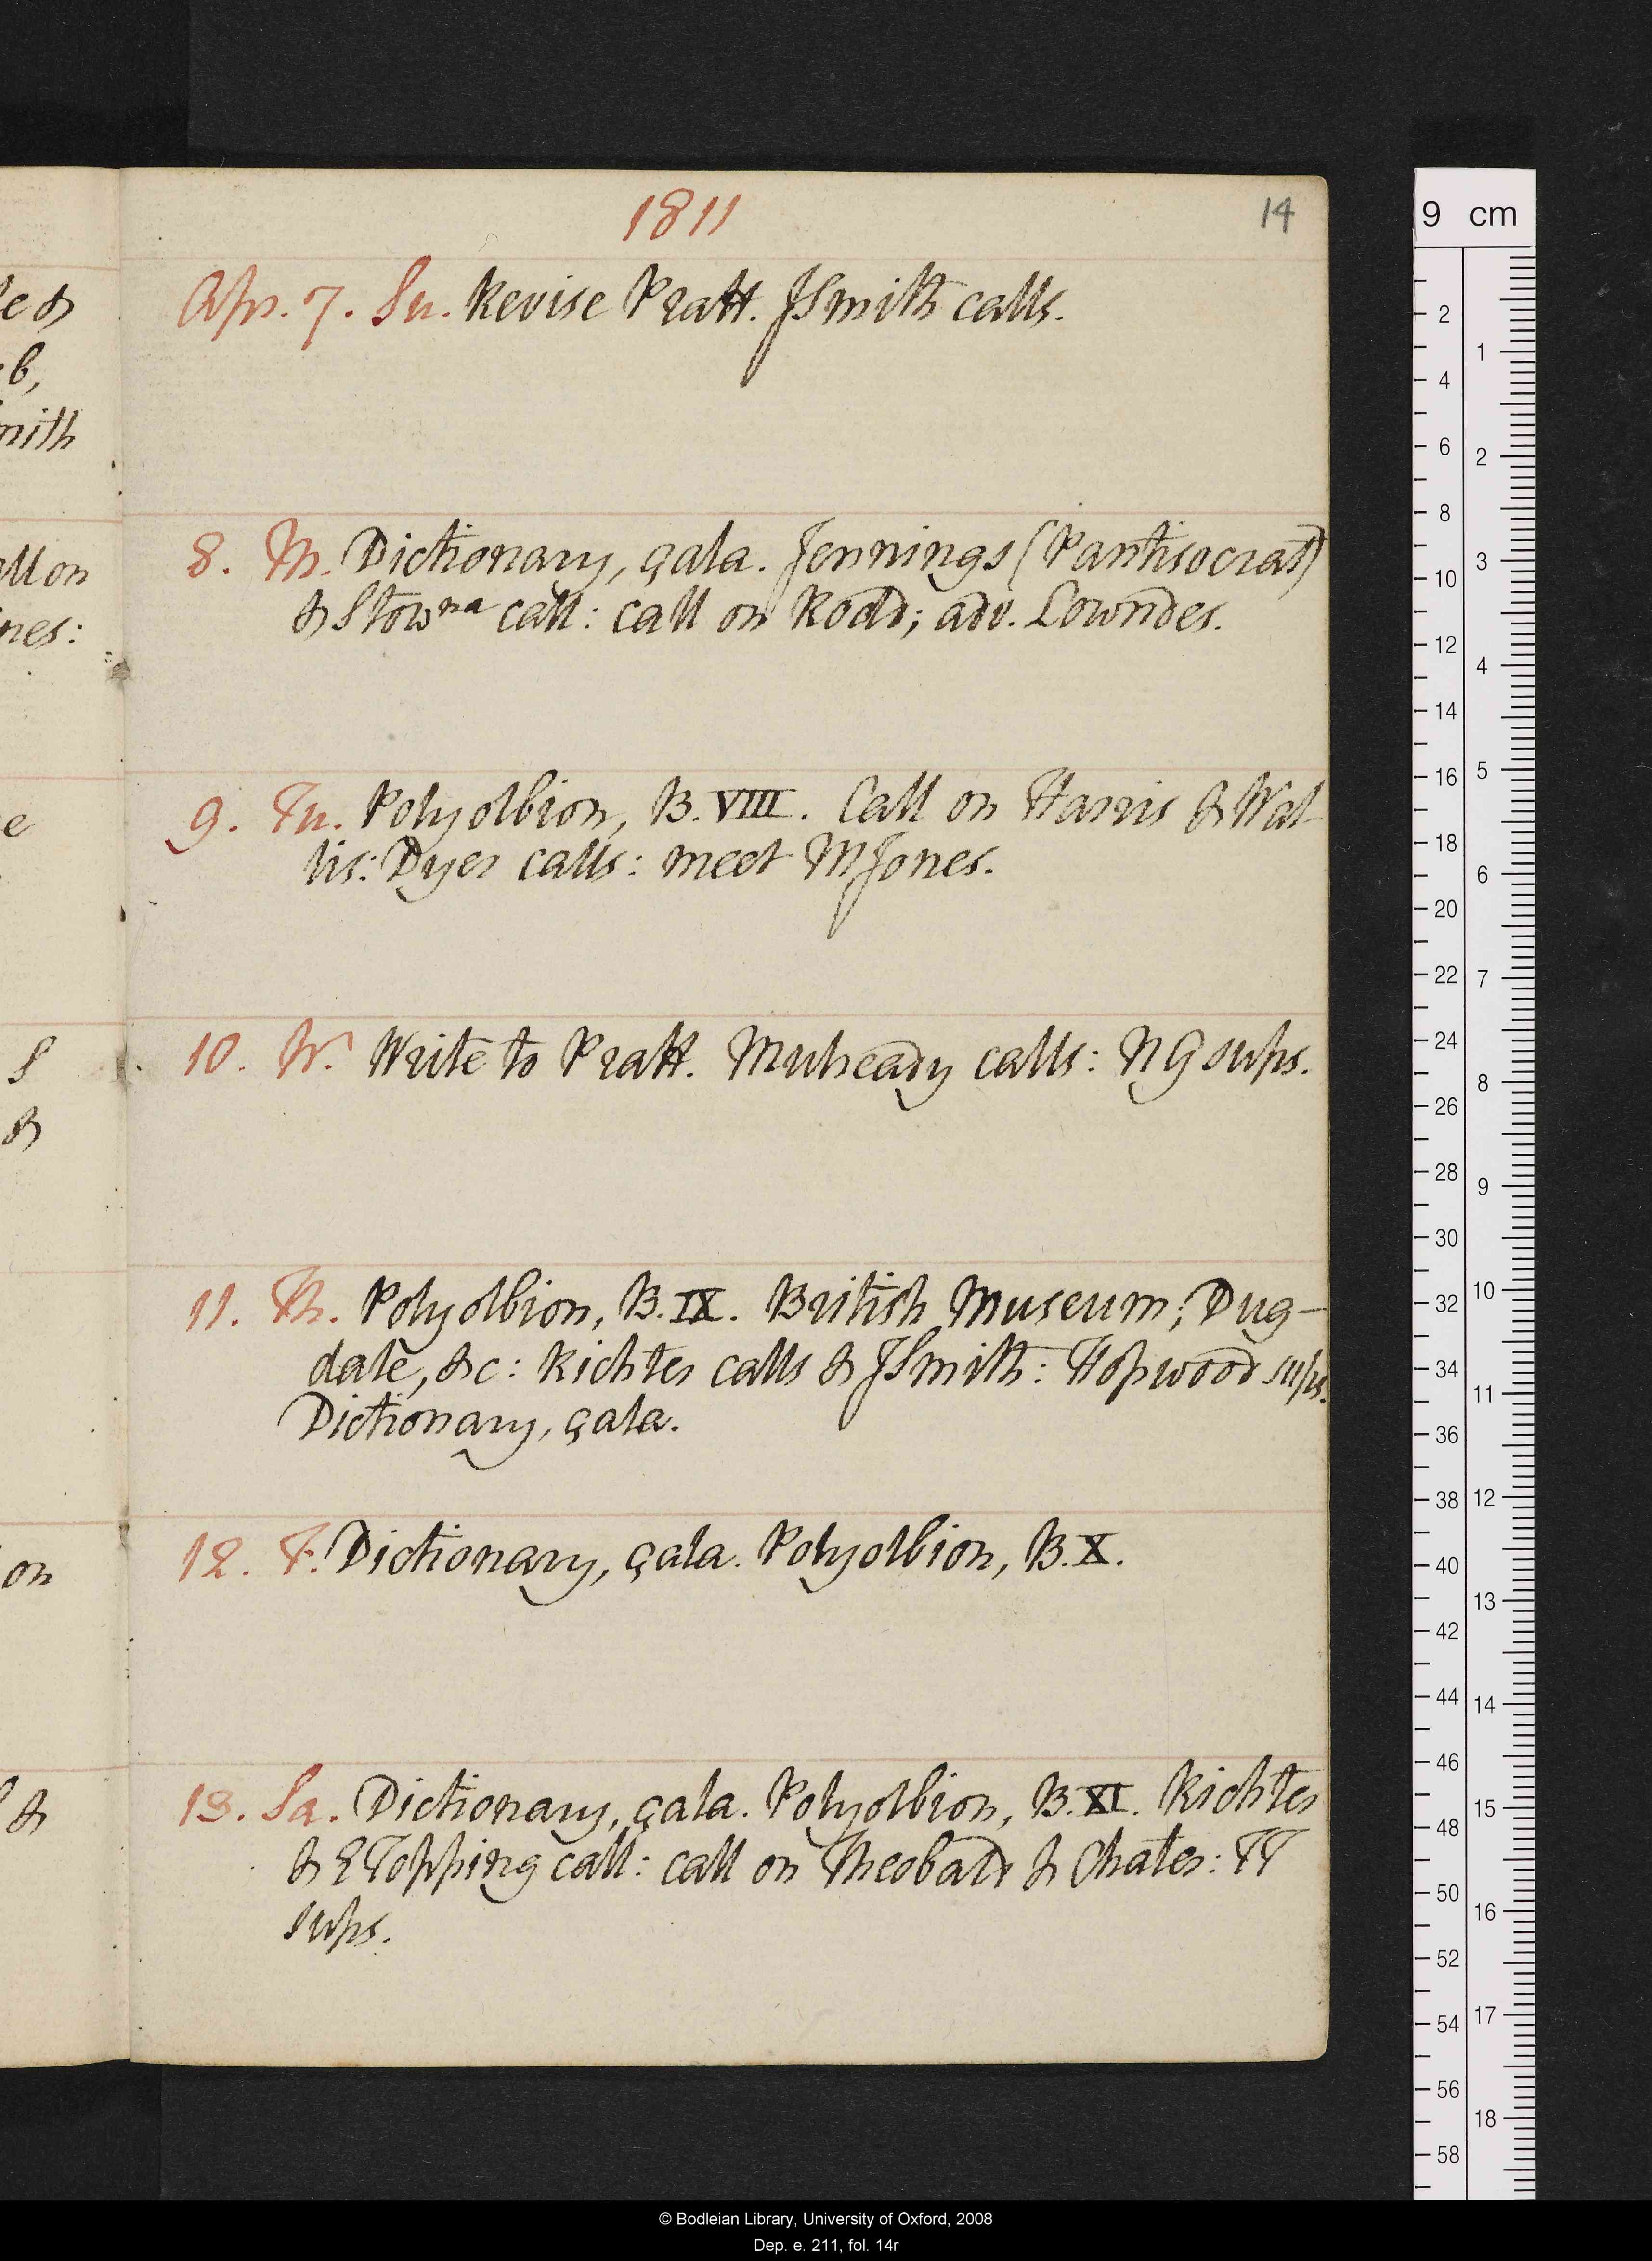 1811
14
Apr. 7. Su. Revise Pratt. JSmith calls.
8. M. Dictionary, çala. Jennings (Pantisocrat)
& Stow^na call: call on Rodd; adv. Lowndes.
9. Tu. Polyolbion, B. VIII. Call on Harris & Wal-
lis: Dyer calls: meet MJones.
10. W. Write to Pratt. Mulready calls: NG sups.
11. Th. Polyolbion, B. IX. British Museum; Dug-
dale, &c: Richter calls & JSmith: Hopwood sups.
Dictionary, çala.
12. F. Dictionary, çala. Polyolbion, B. X.
13. Sa. Dictionary, çala. Polyolbion, B. XI. Richter
& ETopping call: call on Theobald & Chater: TT
sups.
le &
b,
mith
all on
nes:
e
S
&
on
&
9 cm
2
4
6
8
10
12
14
16
18
20
22
24
26
28
30
32
34
36
38
40
42
44
46
48
50
52
54
56
58
1
2
3
4
5
6
7
8
9
10
11
12
13
14
15
16
17
18
© Bodleian Library, University of Oxford, 2008
Dep. e. 211, fol. 14r